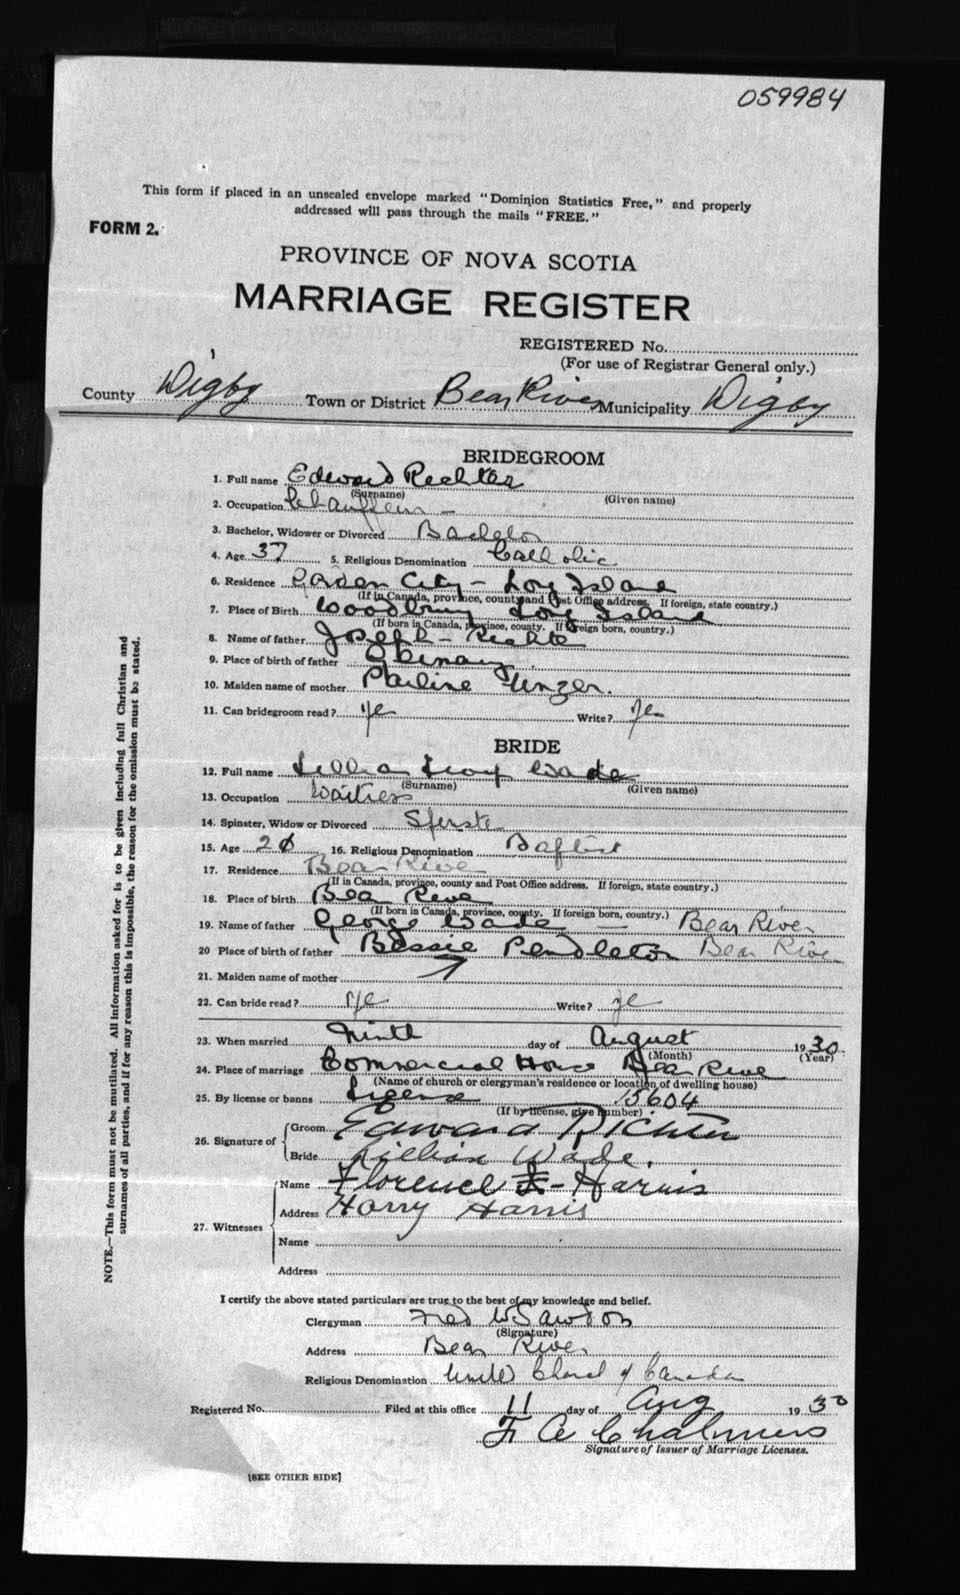 059984
This form if placed in an unsealed envelope marked "Dominion Statistics Free," and properly
addressed will pass through the mails "FREE."
FORM 2.
PROVINCE OF NOVA SCOTIA
MARRIAGE REGISTER
REGISTERED No.
(For use of Registrar General only.)
County Digby Town or District Bear River Municipality Digby
BRIDEGROOM
1. Full name Edward Rechter
(Surname) (Given name)
2. Occupation Chauffeur -
3. Bachelor, Widower or Divorced Bachelor
4. Age 37 5. Religious Denomination Catholic
6. Residence Garden City - Long Island
(If in Canada, province, county and Post Office address. If foreign, state country.)
7. Place of Birth Woodbury Long Island
(If born in Canada, province, county. If foreign born, country.)
8. Name of father Joseph - Rechter
9. Place of birth of father Germany
10. Maiden name of mother Pauline Unzer.
11. Can bridegroom read? ye Write? Yes
BRIDE
12. Full name Lillian Wade
(Surname) (Given name)
13. Occupation Waitress
14. Spinster, Widow or Divorced Spinster
15. Age 20 16. Religious Denomination Baptist
17. Residence Bear River
(If in Canada, province, county and Post Office address. If foreign, state country.)
18. Place of birth Bear River
(If born in Canada, province, county. If foreign born, country.)
19. Name of father George Wade - Bear River
20 Place of birth of father Bessie Pendleton Bear River
21. Maiden name of mother
22. Can bride read? ye Write? ye
23. When married Ninth day of August 1930
(Month) (Year)
24. Place of marriage Commercial House Bear River
(Name of church or clergyman's residence or location of dwelling house)
25. By license or banns License 15604
(If by license, give number)
26. Signature of Groom Edward Richter
Bride Lillian Wade.
27. Witnesses Name Florence E - Harris
Address Harry Harris
Name
Address
I certify the above stated particulars are true to the best of my knowledge and belief.
Clergyman Fred W Sawdon
(Signature)
Address Bear River
Religious Denomination United Church of Canada
Registered No. Filed at this office 11 day of Aug 1930
F A Chalmers
Signature of Issuer of Marriage Licenses.
[SEE OTHER SIDE]
NOTE.—This form must not be mutilated. All information asked for is to be given including full Christian and
surnames of all parties, and if for any reason this is impossible, the reason for the omission must be stated.